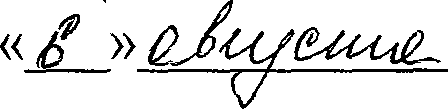 «6» августа